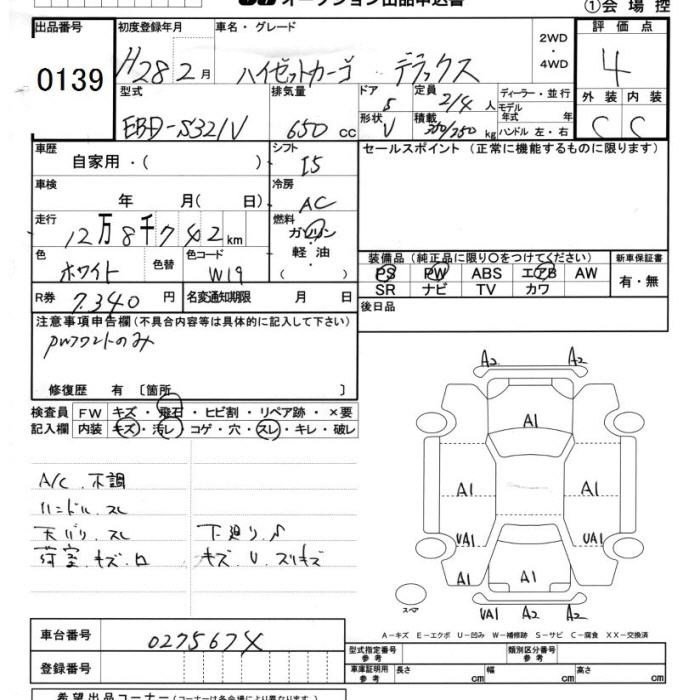 オークション出品申込書
①会場控
出品番号 0139
初度登録年月 H28 2月
車名・グレード ハイゼットカーゴ デラックス
2WD・4WD
評価点 4
外装 C 内装 C
型式 EBD-S321V
排気量 650cc
ドア 5 形状 V
定員 2/4人 積載 350/250kg
ディーラー・並行
モデル年式 年
ハンドル 左・右
車歴 自家用・( )
シフト I5
セールスポイント(正常に機能するものに限ります)
車検 年 月( 日)
冷房 AC
走行 12万8千742km
燃料 ガソリン 軽油・( )
色 ホワイト 色替
色コード W19
装備品(純正品に限り○をつけてください)
PS PW ABS エアB AW
SR ナビ TV カワ
新車保証書 有・無
R券 7.340円
名変通知期限 月 日
後日品
注意事項申告欄(不具合内容等は具体的に記入して下さい)
PWフロントのみ
修復歴 有 〔箇所 〕
検査員記入欄
FW キズ・飛石・ヒビ割・リペア跡・×要
内装 キズ・汚レ・コゲ・穴・スレ・キレ・破レ
A/C.不調
ハンドル.スレ
天バリ.スレ 下廻り.S
荷室.キズ.ロ キズ.U.スリキズ
A2 A2
A1
A1 A1
UA1 UA1
A1 A1
スペア
UA1 A2 A2
A-キズ E-エクボ U-凹み W-補修跡 S-サビ C-腐食 XX-交換済
車台番号 0275674
登録番号
型式指定番号 参考 類別区分番号 参考
車庫証明用 参考 長さ cm 幅 cm 高さ cm
希望出品コーナー(コーナーは各会場により異なります)